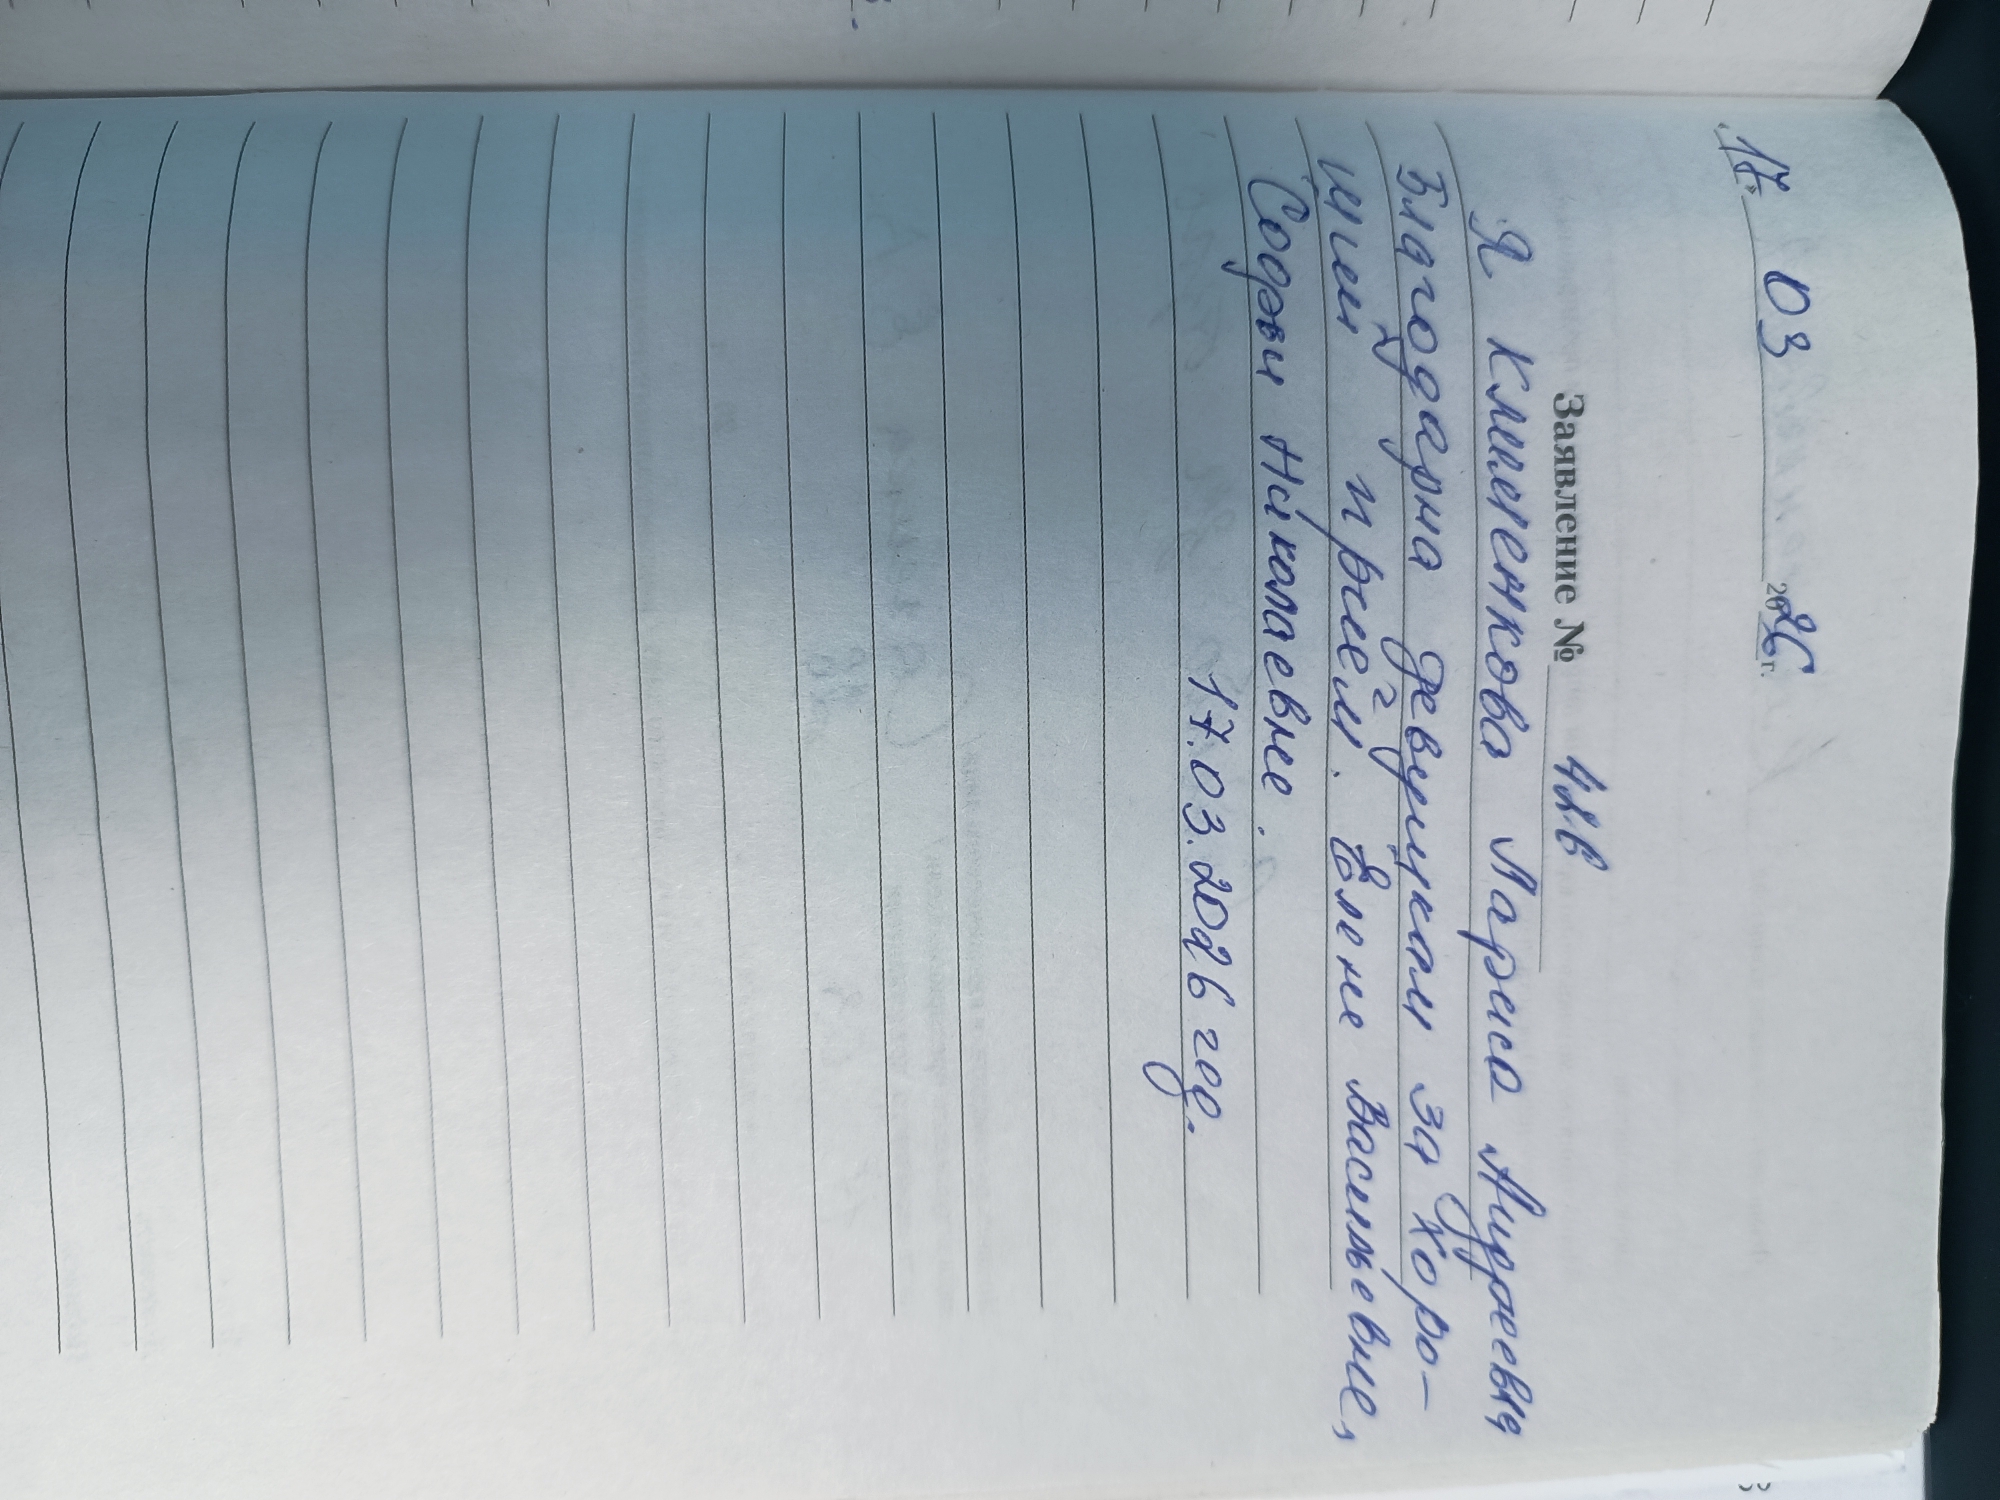 «17» 03 2026 г.
Заявление №
Я Клименкова Лариса Андреевна
Благодарна девушкам за хоро-
ший приём. Елене Васильевне,
Софьи Николаевне.
17.03.2026 год.